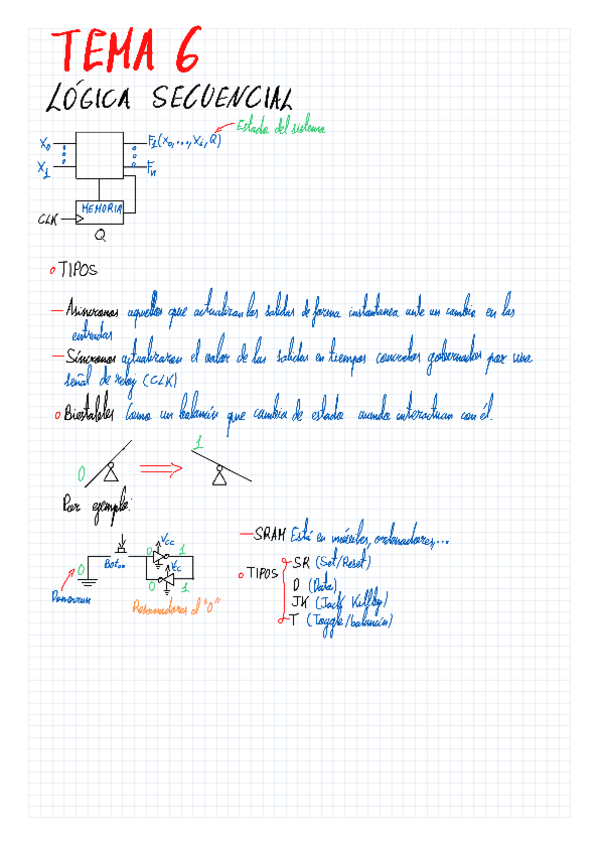 TEMA 6
LÓGICA SECUENCIAL
Estado del sistema
X₀ F₁(x₀,...,Xᵢ,Q)
X₁ Fₙ
MEMORIA
CLK
Q
TIPOS
Asíncronos aquellos que actualizan las salidas de forma instantanea ante un cambio en las
entradas
Síncronos actualizaran el valor de las salidas en tiempos concretos gobernados por una
señal de reloj (CLK)
Biestables Como un balancín que cambia de estado cuando interactuan con él.
0 1
Por ejemplo:
SRAM Está en móviles, ordenadores,...
Vcc
0 1
Boton
Vcc
0 0 1
TIPOS
SR (Set/Reset)
D (Data)
JK (Jack Killby)
T (Toggle/balancín)
el "0"